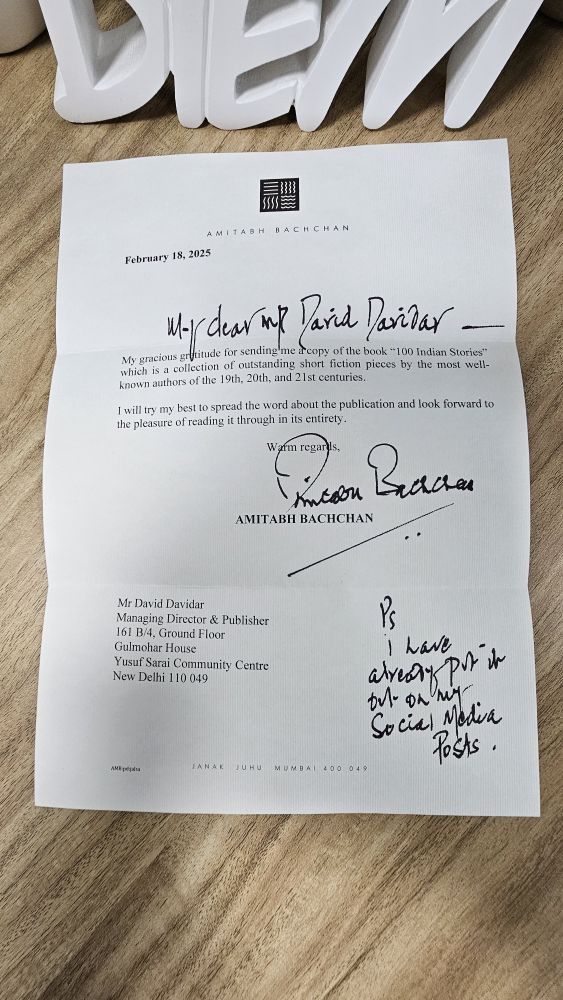 DEM
AMITABH BACHCHAN
February 18, 2025
My dear mr David Davidar
My gracious gratitude for sending me a copy of the book “100 Indian Stories”
which is a collection of outstanding short fiction pieces by the most well-
known authors of the 19th, 20th, and 21st centuries.
I will try my best to spread the word about the publication and look forward to
the pleasure of reading it through in its entirety.
Warm regards,
Amitabh Bachchan
AMITABH BACHCHAN
Mr David Davidar
Managing Director & Publisher
161 B/4, Ground Floor
Gulmohar House
Yusuf Sarai Community Centre
New Delhi 110 049
Ps
i have
already put it
out on my
Social Media
Posts.
JANAK JUHU MUMBAI 400 049